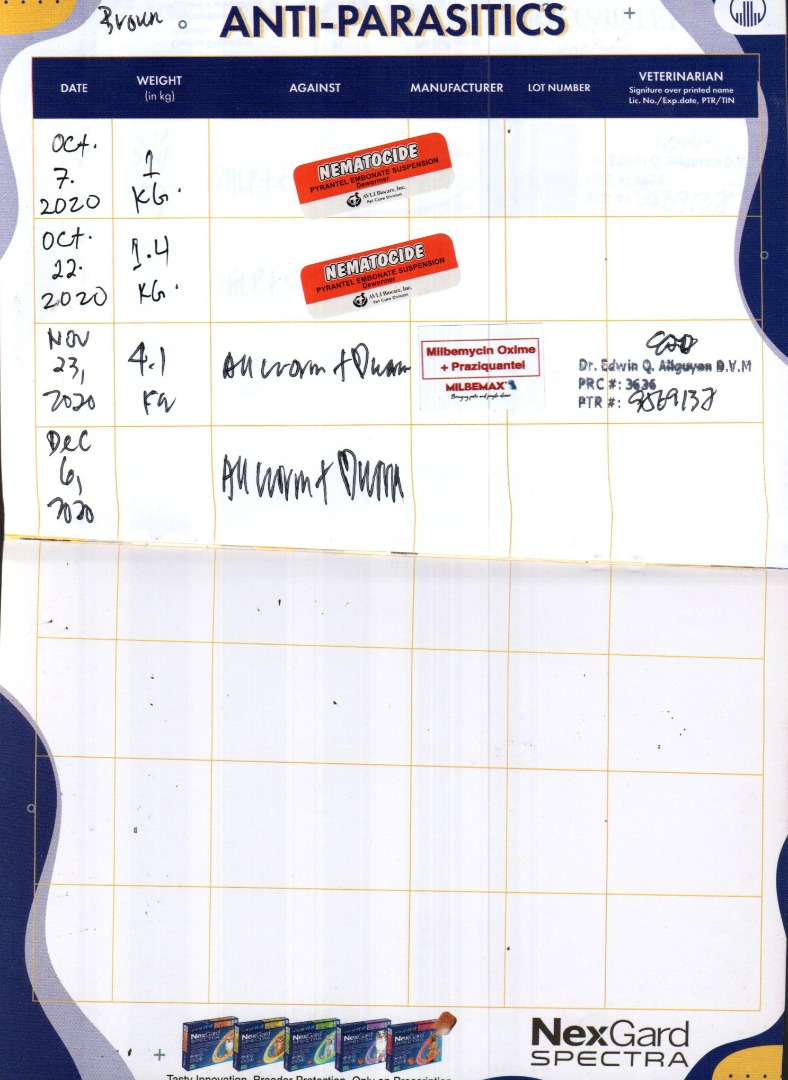 Brown
ANTI-PARASITICS
DATE
WEIGHT
(in kg)
AGAINST
MANUFACTURER
LOT NUMBER
VETERINARIAN
Signiture over printed name
Lic. No./Exp.date, PTR/TIN
Oct.
7.
2020
1
KG.
NEMATOCIDE
PYRANTEL EMBONATE SUSPENSION
Dewormer
AVLI Biocare, Inc.
Pet Care Division
Oct.
22.
2020
1.4
KG.
NEMATOCIDE
PYRANTEL EMBONATE SUSPENSION
Dewormer
AVLI Biocare, Inc.
Pet Care Division
NOV
23,
2020
4.1
All worm +
Milbemycin Oxime
+ Praziquantel
MILBEMAX
Dr. Edwin Q. D.V.M
PRC #: 3636
PTR #:
Dec
6,
2020
All worm +
NexGard
SPECTRA
Tasty Innovation. Broader Protection. Only on Prescription